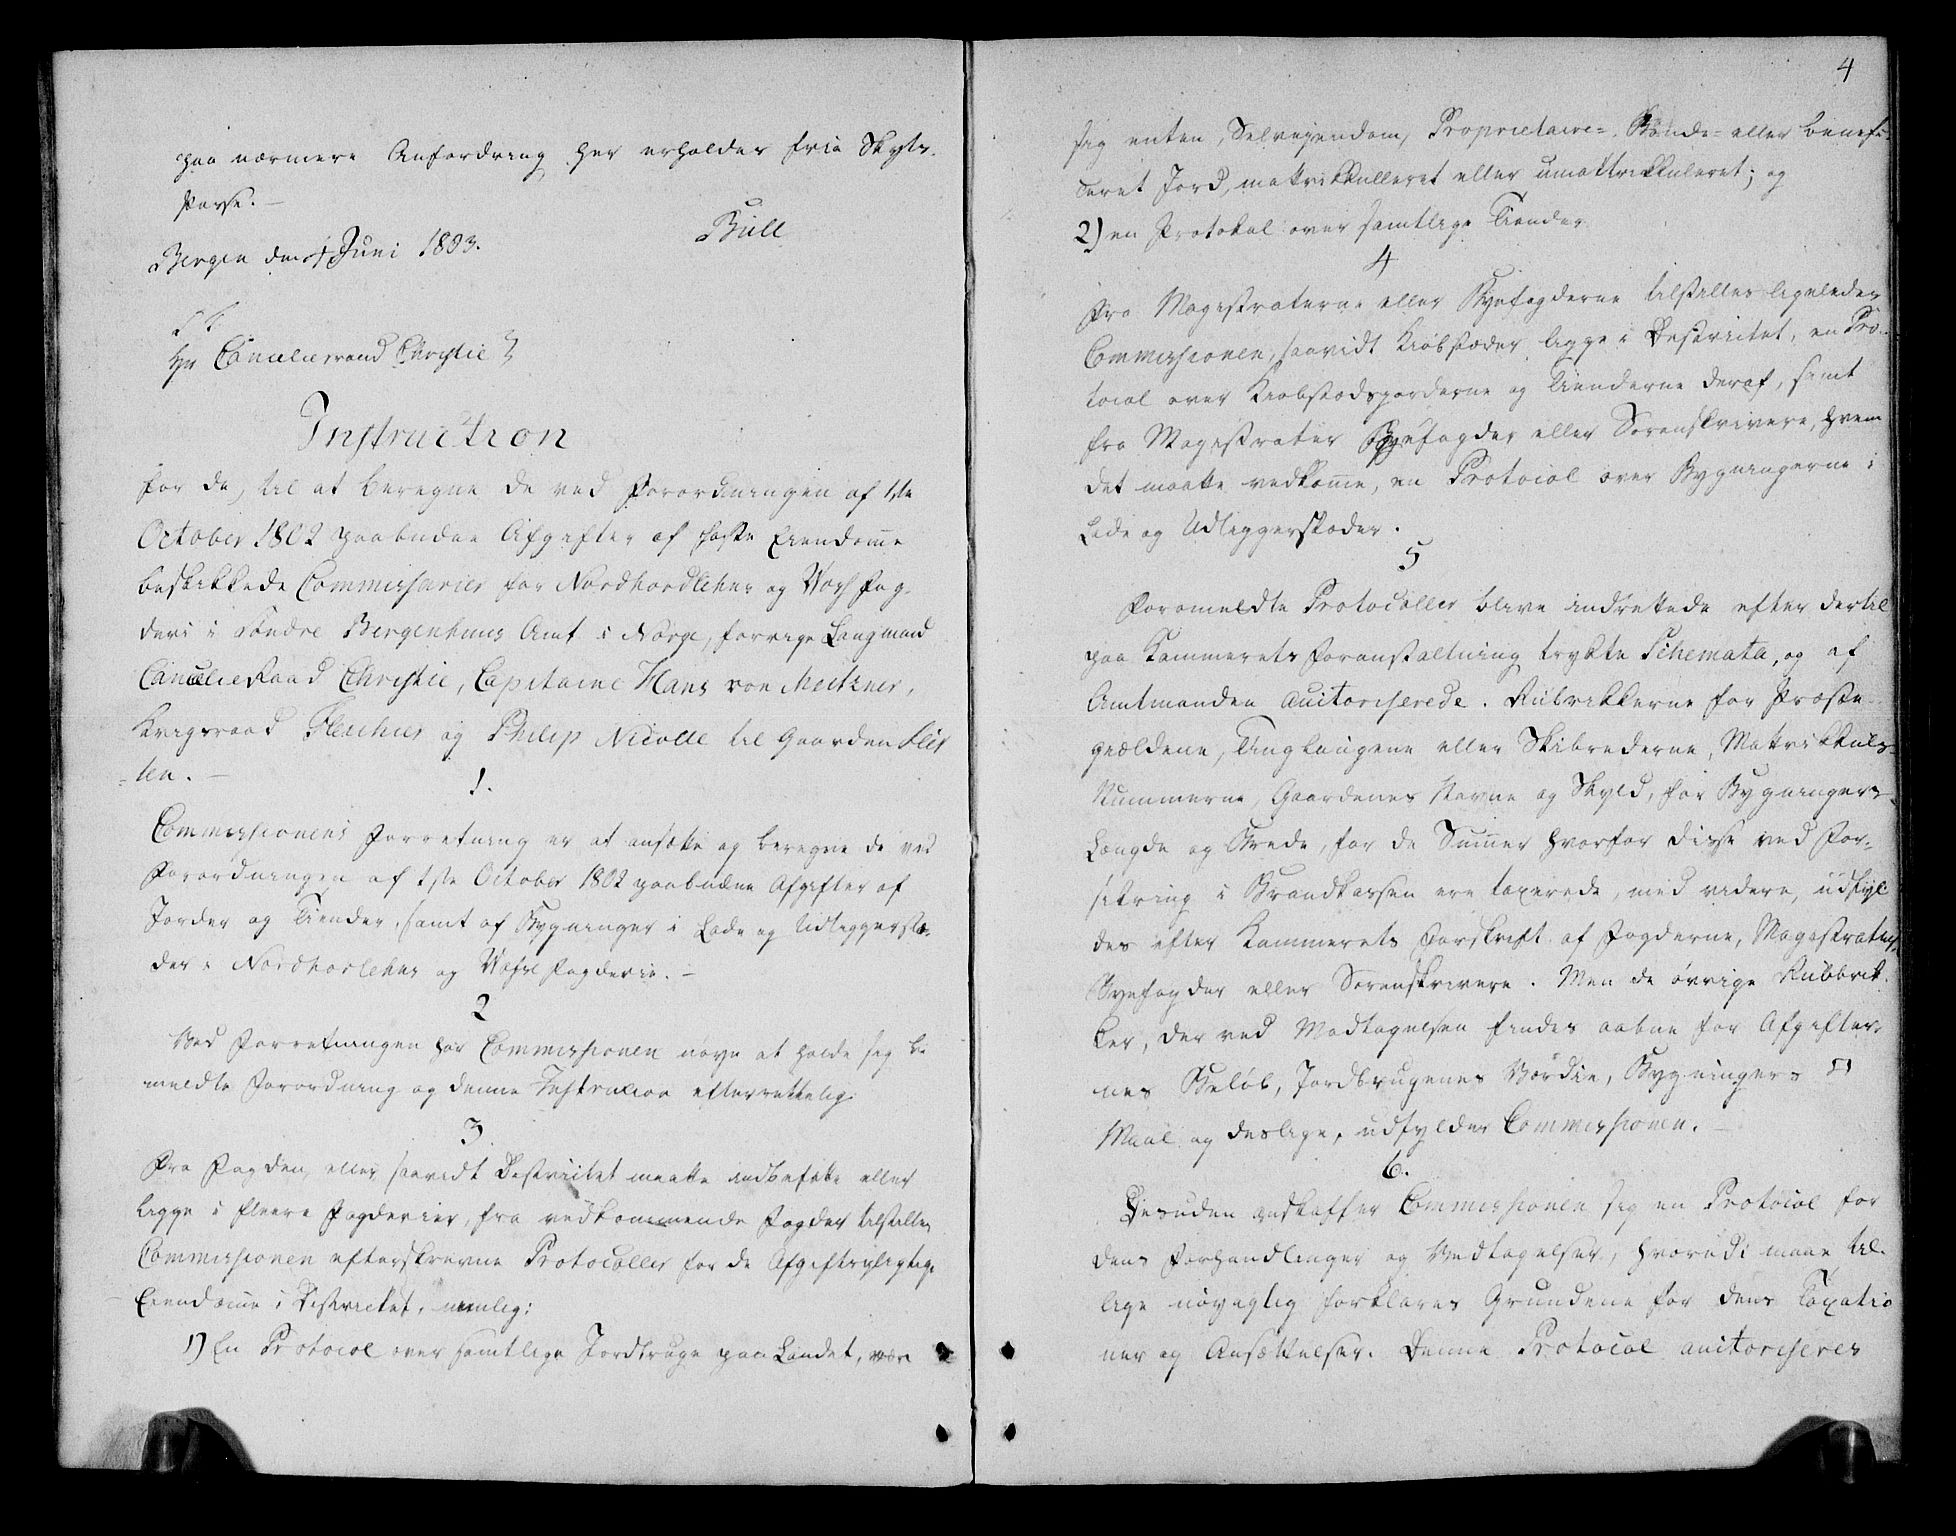 paa nærmere Anfordring her erholder frie Skyts-
Parse. —
Bull
Bergen den 4 Juni 1803.
S. T.
Hr Cancelieraad Christie
Instruction
for de, til at beregne de ved Forordningen af 1ste
October 1802 paabudne Afgifter af faste Eiendome
beskikkede Commissarier for Nordhordlehns og Woss Fog-
deri i Søndre Bergenhuus Amt i Norge, forrige Laugmand
CancelieRaad Christie, Capitaine Hans von Meitzner,
Krigsraad Fleischer og Philip Nicolle til Gaarden Slet
-ten. —
1.
Commissionens Forretning er at ansætte og beregne de ved
Forordningen af 1ste October 1802 paabudne Afgifter af
Jorder og Tiender, samt af Bygninger i Lade og Udliggerste-
der i Nordhorlehns og Wosse Fogderie. —
2
Ved Forretningen har Commissionen nøye at holde sig be
meldte Forordning og denne Instruction efterrettelig.
3
Fra Fogden, eller saavidt Destrictet maatte indbefatte eller
ligge i fleere Fogderier, fra vedkommende Fogder tilstilles
Commissionen efterskrevne Protocoller for de Afgiftspligtige
Eiendome i Destrictet, nemlig:
1) En Protocol over samtlige Jordbruge paa Landet, være
4
sig enten Selveyendom, Proprietaire-, Bønde- eller benefi-
ceret Jord, matrikkulleret eller umattrikkuleret; og
2) en Protokol over samtlige Tiender
4
Fra Magistraterne eller Byefogderne tilstilles ligeledes
Commissionen, saavidt Kiøbstæder ligge i Destrictet, en Pro-
tocol over Kiøbstadsjorderne og Tienderne deraf, samt
fra Magistrater Byefogder eller Sorenskrivere, hvem
det maatte vedkome, en Protocol over Bygningerne i
Lade og Udliggerstæder.
5
Formeldte Protocoller blive indrettede efter dertil
paa Kammerets Foranstaltning trykte Schemata, og af
Amtmanden auctoriserede. Rubrikkerne for Præste-
gieldene, Tinglaugene eller Skibrederne, Matrikkuls-
Nummerne, Gaardenes Navne og Skyld, for Bygningers
Længde og Brede, for de Sumer hvorfor disse ved For-
sikring i Brandkassen ere taxerede, med videre, udfyl
des efter Kammerets Forskrift af Fogderne, Magistrater,
Byefogder eller Sorenskrivere. Men de øvrige Rubbrik
ker, der ved Modtagelsen findes aabne for Afgifter-
nes Beløb, Jordbrugenes Værdie, Bygningers □
Maal og deslige, udfylder Commissionen. —
6.
Desuden anskaffer Commissionen sig en Protocol for
dens Forhandlinger og Vedtagelser, hvorudi maae til-
lige nøyagtig forklares Grundene for dens Taxatio
ner og Ansættelser. Denne Protocol auctoriseres